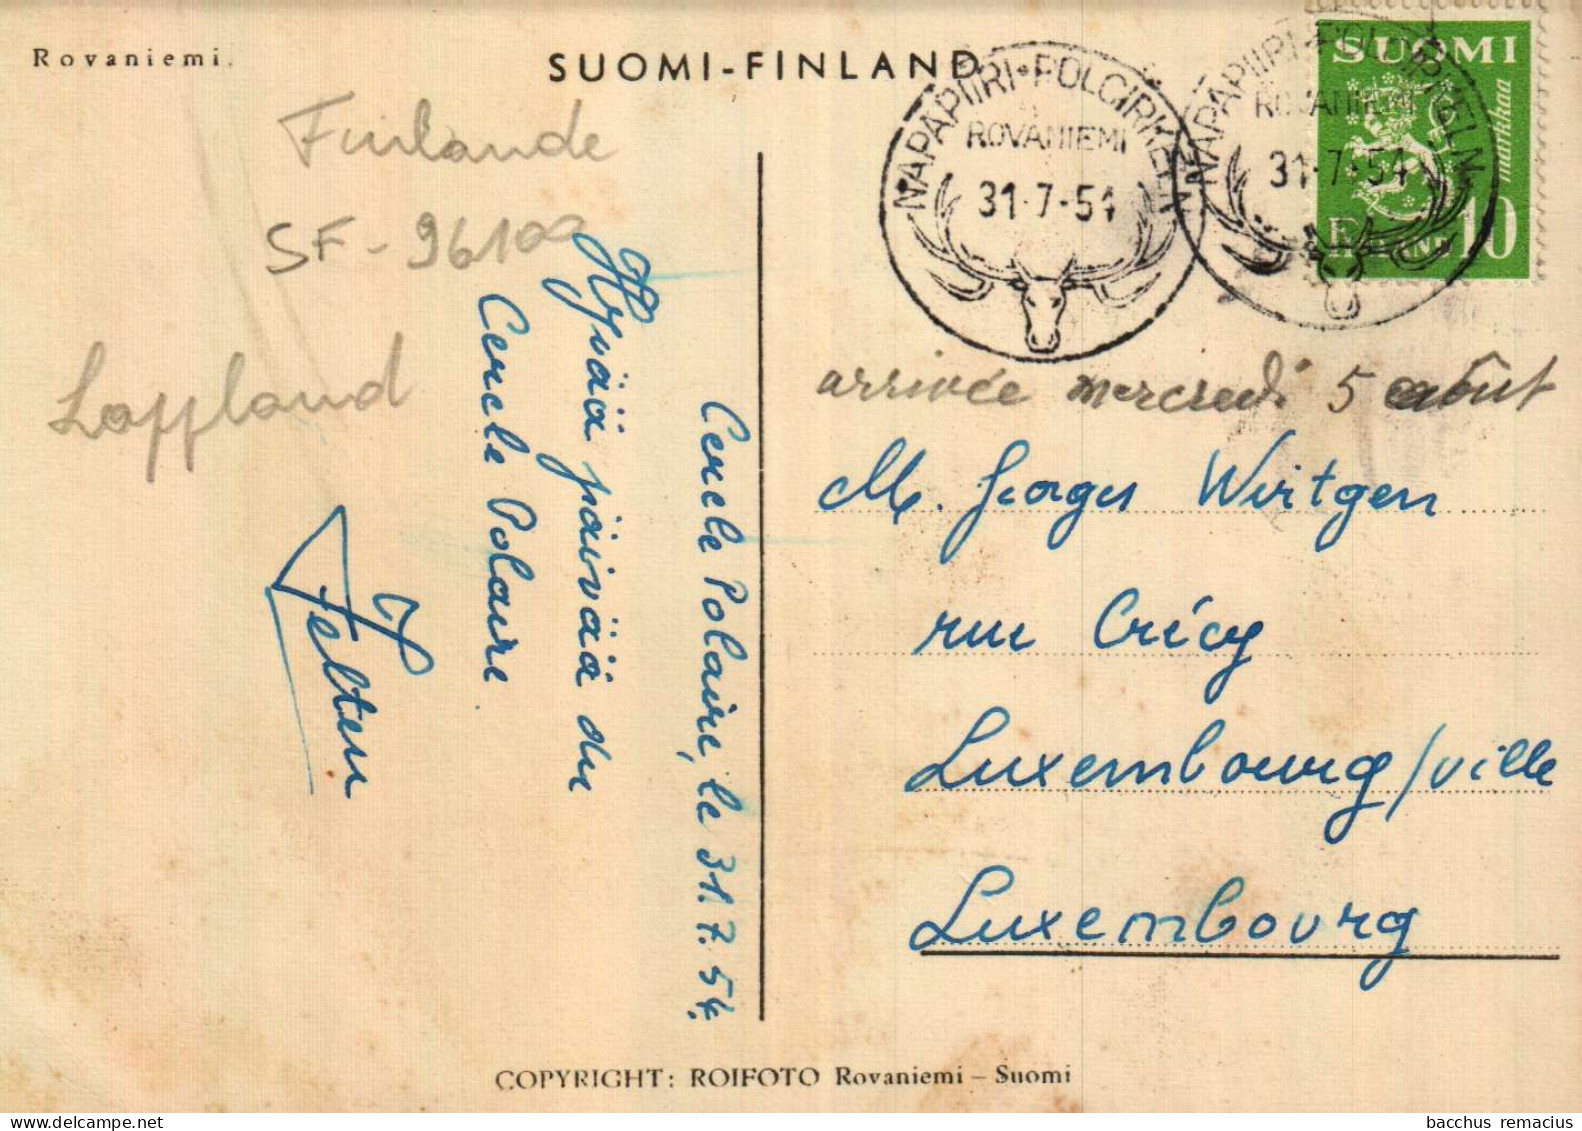 Rovaniemi.
SUOMI-FINLAND
NAPAPIIRI-POLCIRKELN
ROVANIEMI
31-7-54
NAPAPIIRI-POLCIRKELN
ROVANIEMI
31-7-54
SUOMI
markkaa
FINLAND 10
Finlande
SF-96100
Lappland
Cercle Polaire, le 31.7.54.
Hyvää päivää du
Cercle Polaire
Felten
arrivée mercredi 5 août
M. Georges Wirtgen
rue Crécy
Luxembourg/ville
Luxembourg
COPYRIGHT: ROIFOTO Rovaniemi – Suomi
bacchus remacius